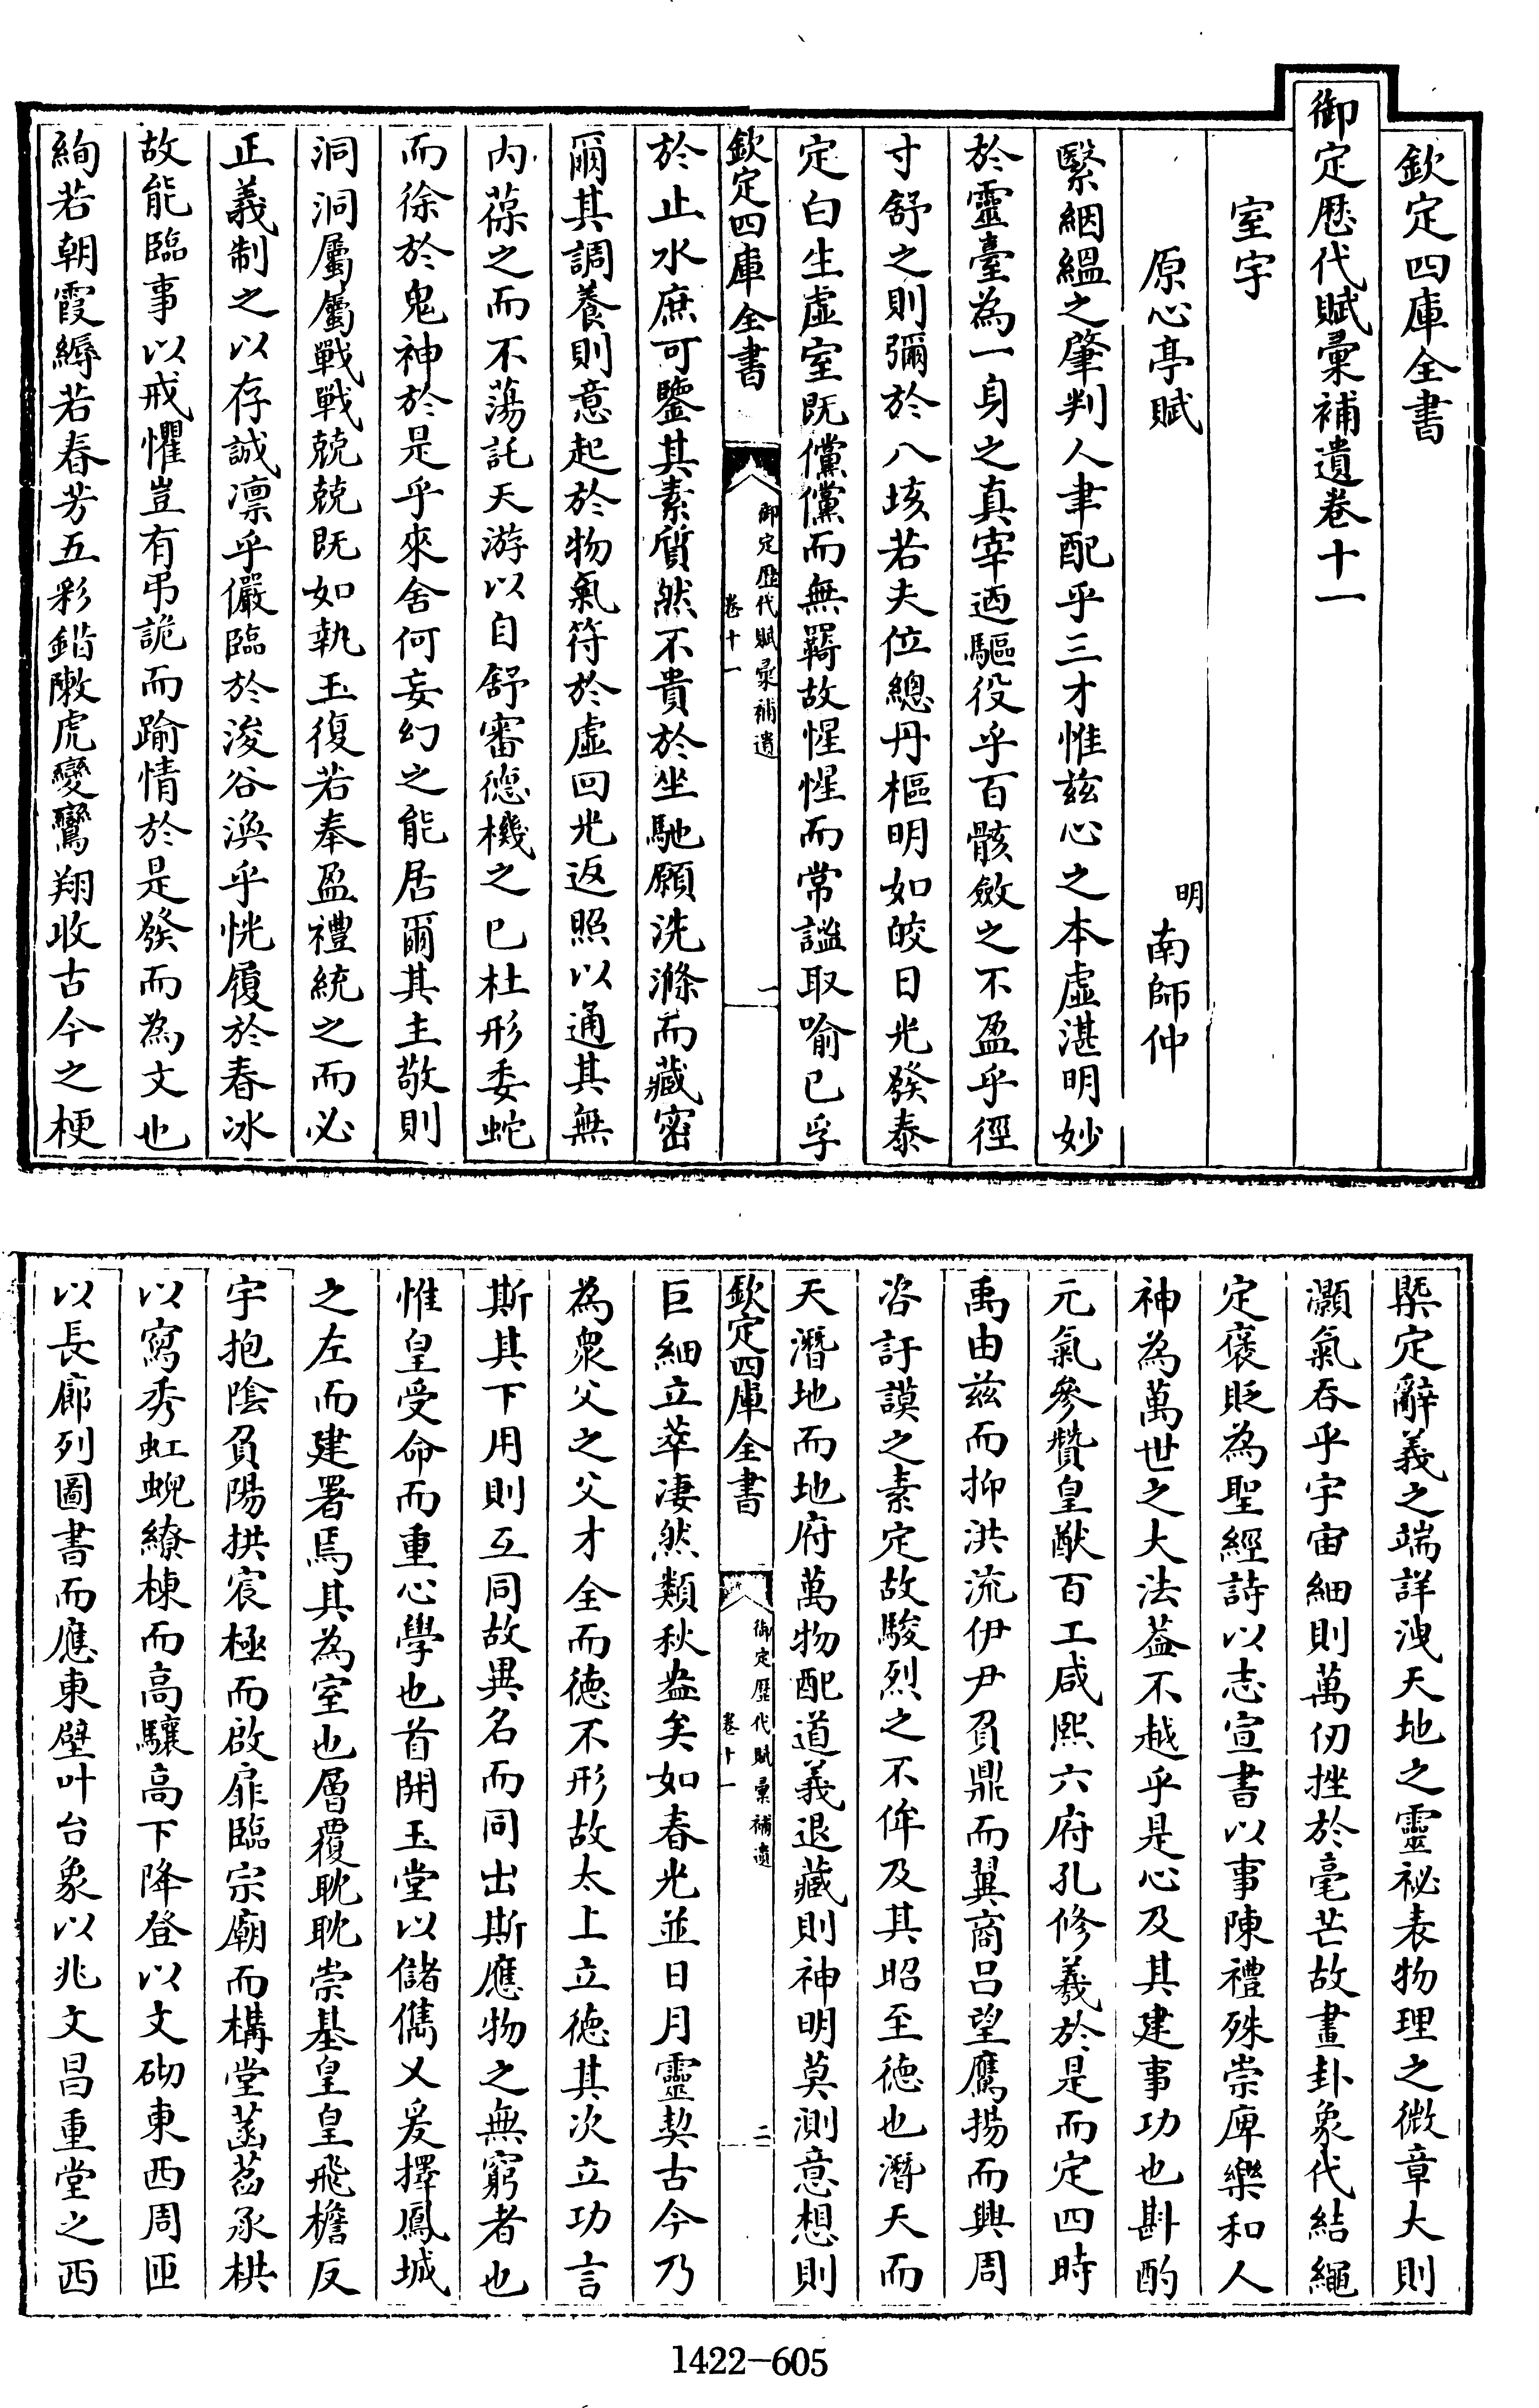 欽定四庫全書
御定歴代賦彙補遺卷十一
室宇
原心亭賦
明南師仲
緊絪緼之肇判人聿配乎三才惟茲心之本虛湛明妙
於靈臺為一身之真宰迺驅役乎百骸斂之不盈乎徑
寸舒之則彌於八垓若夫位總丹樞明如皎日光發泰
定白生虛室既儻儻而無羈故惺惺而常謐取喻已孚
欽定四庫全書
御定歷代賦彙補遺
卷十一
一
於止水庶可鑒其素質然不貴於坐馳願洗滌而藏密
爾其調養則意起於物氣符於虛回光返照以通其無
內葆之而不蕩託天游以自舒審德機之已杜形委蛇
而徐於鬼神於是乎來舍何妄幻之能居爾其主敬則
洞洞屬屬戰戰兢兢既如執玉復若奉盈禮統之而必
正義制之以存誠凛乎儼臨於浚谷渙乎恍履於春冰
故能臨事以戒懼豈有弔詭而踰情於是發而為文也
絢若朝霞縟若春芳五彩錯陳虎變鸞翔收古今之梗
槩定辭義之端詳洩天地之靈祕表物理之微章大則
灝氣吞乎宇宙細則萬仞挫於毫芒故畫卦象代結繩
定褒貶為聖經詩以志宣書以事陳禮殊崇庳樂和人
神為萬世之大法葢不越乎是心及其建事功也斟酌
元氣參贊皇猷百工咸熙六府孔修羲於是而定四時
禹由茲而抑洪流伊尹負鼎而翼商吕望鷹揚而興周
咨訏謨之素定故駿烈之不侔及其昭至德也潛天而
天潛地而地府萬物配道義退藏則神明莫測意想則
欽定四庫全書
御定歷代賦彙補遺
卷十一
二
巨細立萃淒然類秋盎矣如春光並日月靈契古今乃
為衆父之父才全而德不形故太上立德其次立功言
斯其下用則互同故異名而同出斯應物之無窮者也
惟皇受命而重心學也首開玉堂以儲儁乂爰擇鳳城
之左而建署焉其為室也層覆耽耽崇基皇皇飛檐反
宇抱陰負陽拱宸極而啟扉臨宗廟而構堂菡萏承栱
以窩秀虹蜺繚棟而高驤高下降登以文砌東西周匝
以長廊列圖書而應東壁叶台象以兆文昌重堂之西
1422-605